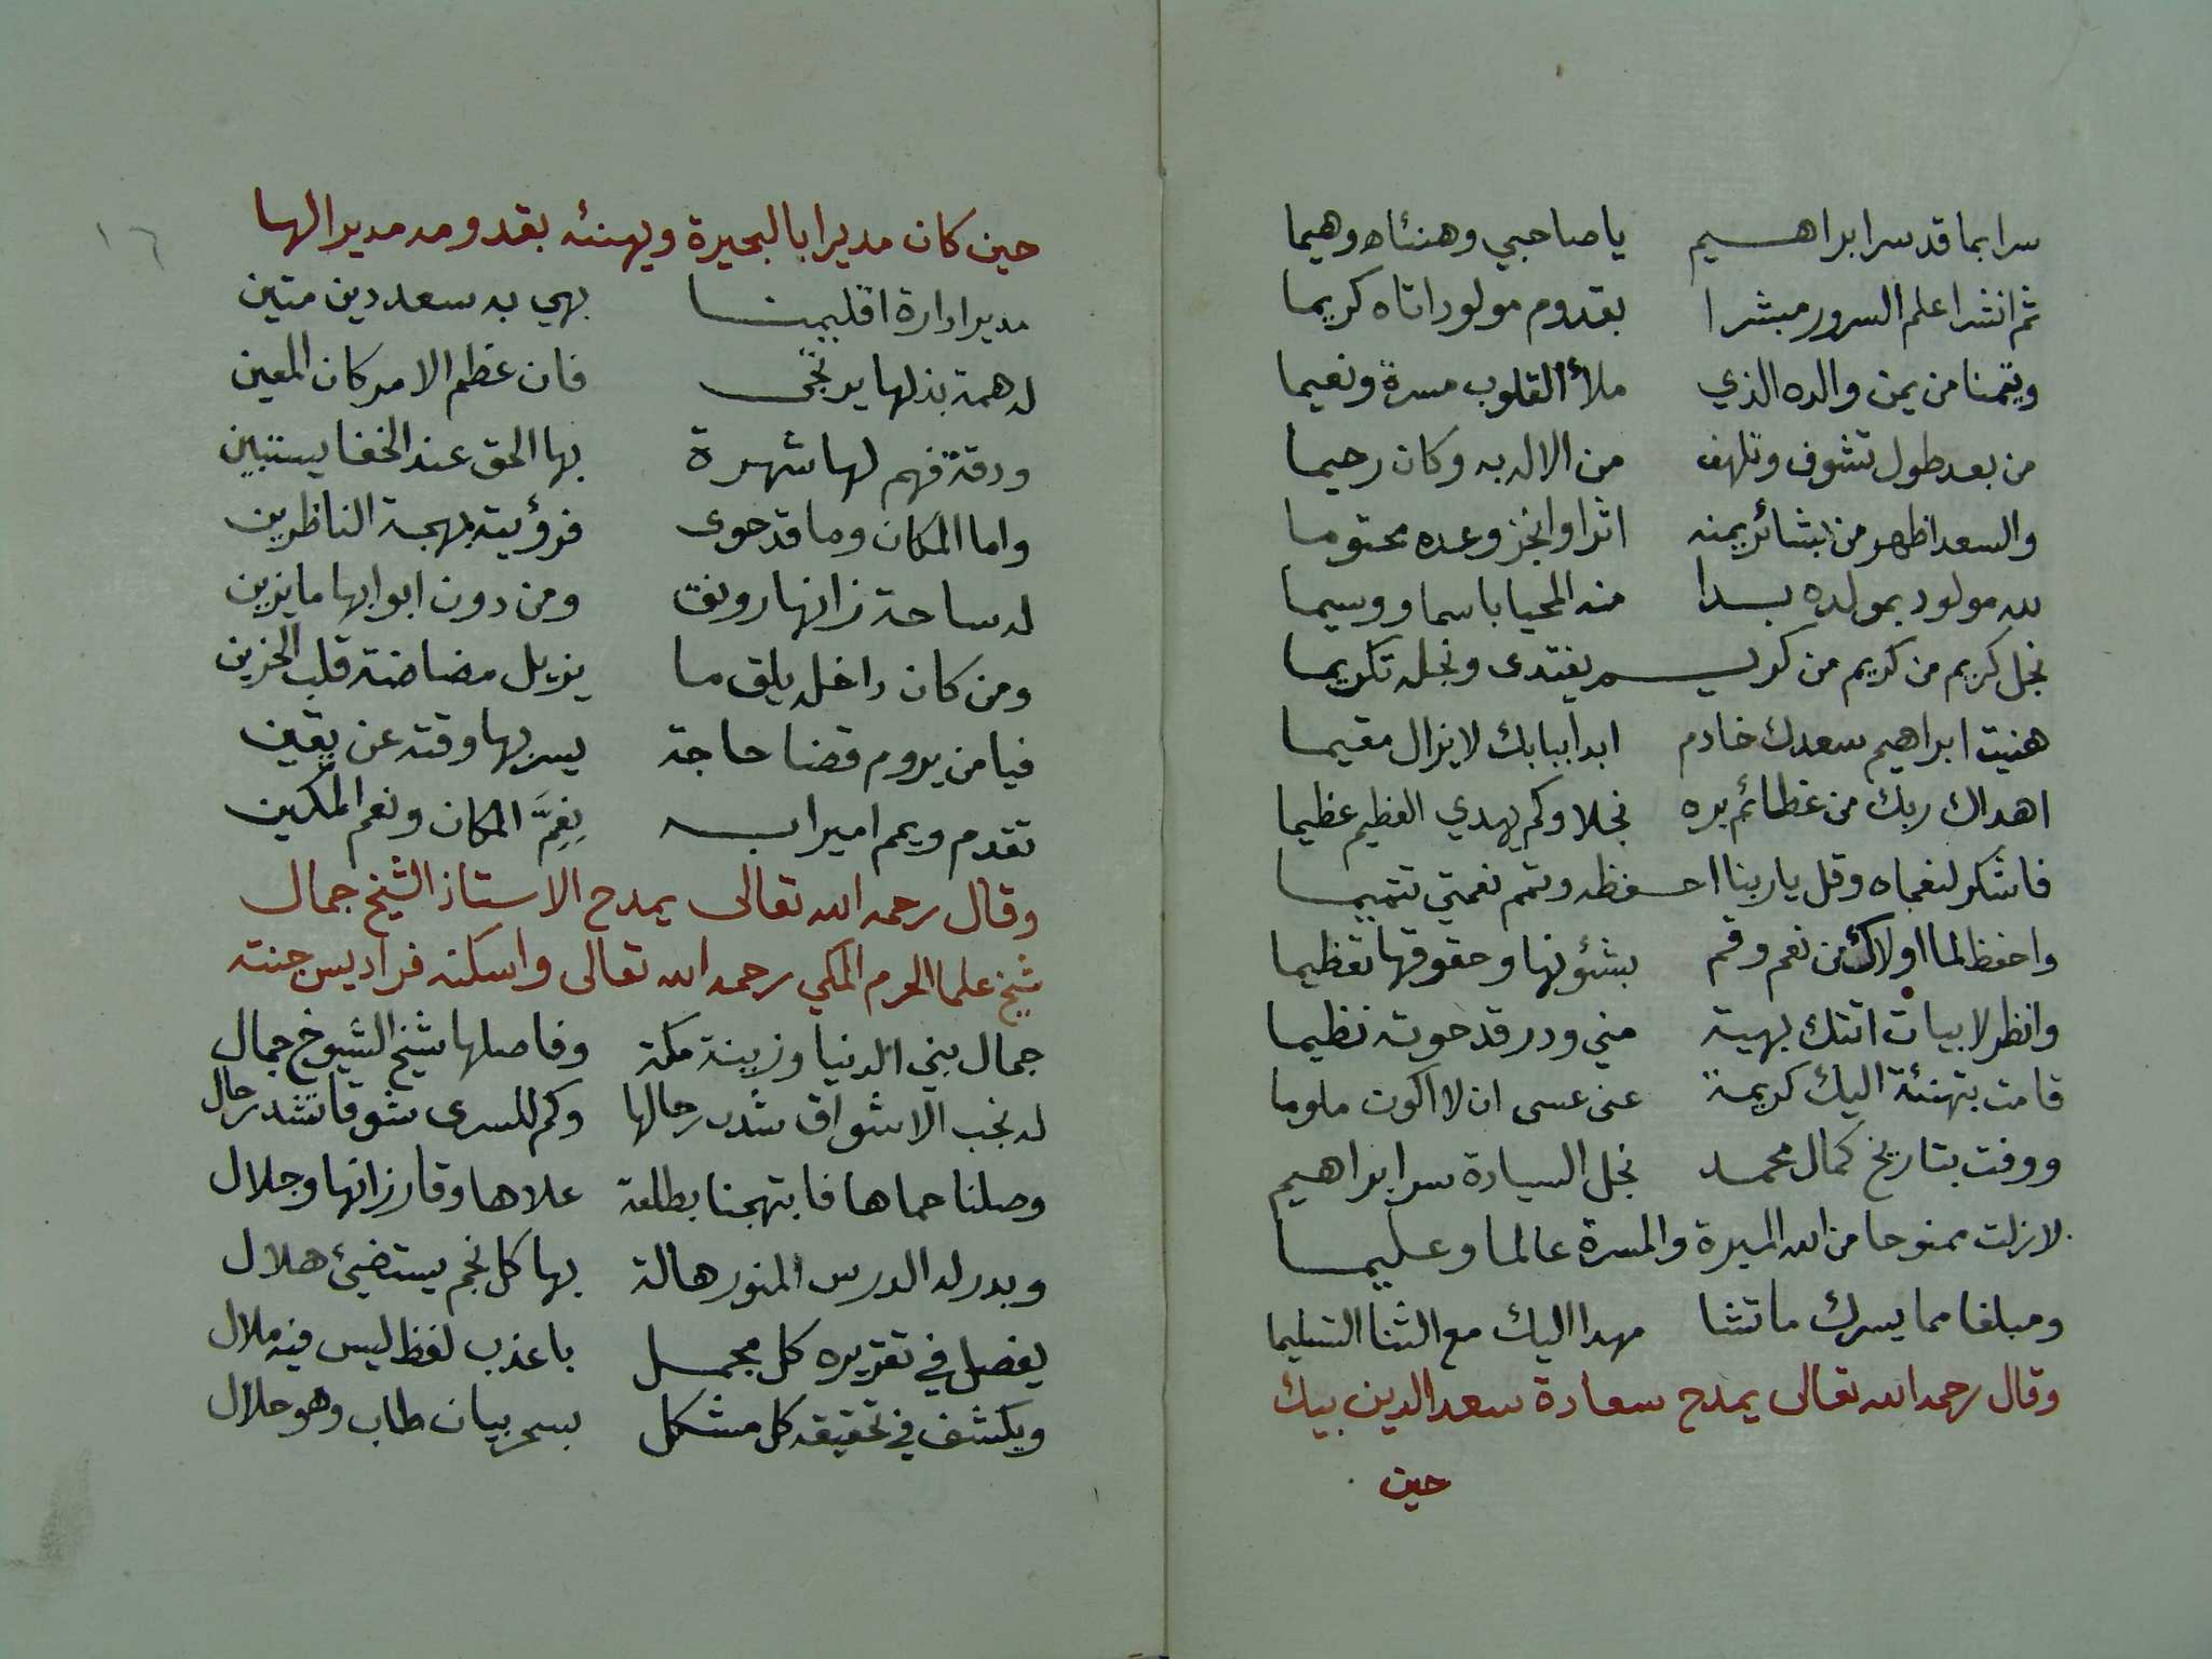 سرا بما قد سرا ابراهيم يا صاحبي وهنئاه وهيما
ثم انشرا علم السرور مبشرا بقدوم مولود اتاه كريما
وتيمنا من يمن والده الذي ملأ القلوب مسرة ونعيما
من بعد طول تشوف وتلهف من الاله به وكان رحيما
والسعد اظهر من بشائر يمنه اثرا وانجز وعده محتوما
لله مولود بمولده بدا منه المحيا باسما ووسيما
نجل كريم من كريم من كريم يفتدى ونجله تكريما
هنيت ابراهيم سعدك خادم ابدا ببابك لا يزال مقيما
اهداك ربك من عظائم بره نجلا وكم يهدي العظيم عظيما
فاشكر لنعماه وقل يا ربنا احفظه وتمم نعمتي تتميما
واحفظ لما اولاك من نعم وقم بشؤنها وحقوقها تعظيما
وانظر لابيات اتتك بهية مني ودر قد حوته نظيما
قامت بتهنئة اليك كريمة عنى عسى ان لا اكون ملوما
ووفت بتاريخ كمال محمد نجل السيادة سر ابراهيم
لازلت ممنوحا من الله المبرة والمسرة عالما وعليما
ومبلغا مما يسرك ما تشا مهدا اليك مع الثنا التسليما
وقال رحمه الله تعالى يمدح سعادة سعد الدين بيك
حين
١٦
حين كان مديرا بالبحيرة ويهنئه بقدومه مديرا لها
مدير ادارة اقليمنا بهي به سعد دين متين
له همة بذلها يرتجى فان عظم الامر كان المعين
ودقة فهم لها شهرة بها الحق عند الخفا يستبين
واما المكان وما قد حوى فرؤيته بهجة الناظرين
له ساحة زانها رونق ومن دون ابوابها ما يزين
ومن كان داخله يلق ما يزيل مضاضة قلب الحزين
فيا من يروم قضا حاجة يسر بها وقته عن يقين
تقدم ويمم اميرا به نِعِمَّ المكان ونعم المكين
وقال رحمه الله تعالى يمدح الاستاذ الشيخ جمال
شيخ علما الحرم المكي رحمه الله تعالى واسكنه فراديس جنته
جمال بني الدنيا وزينة مكة وفاصلها شيخ الشيوخ جمال
له نجب الاشواق شدت رحالها وكم للسرى شوقا تشد رحال
وصلنا حماها فابتهجنا بطلعة علاها وقار زانها وجلال
وبدر له الدرس المنور هالة بها كل نجم يستضيئ هلال
يفصل في تقريره كل مجمل باعذب لفظ ليس فيه ملال
ويكشف في تحقيقه كل مشكل بسحر بيان طاب وهو حلال